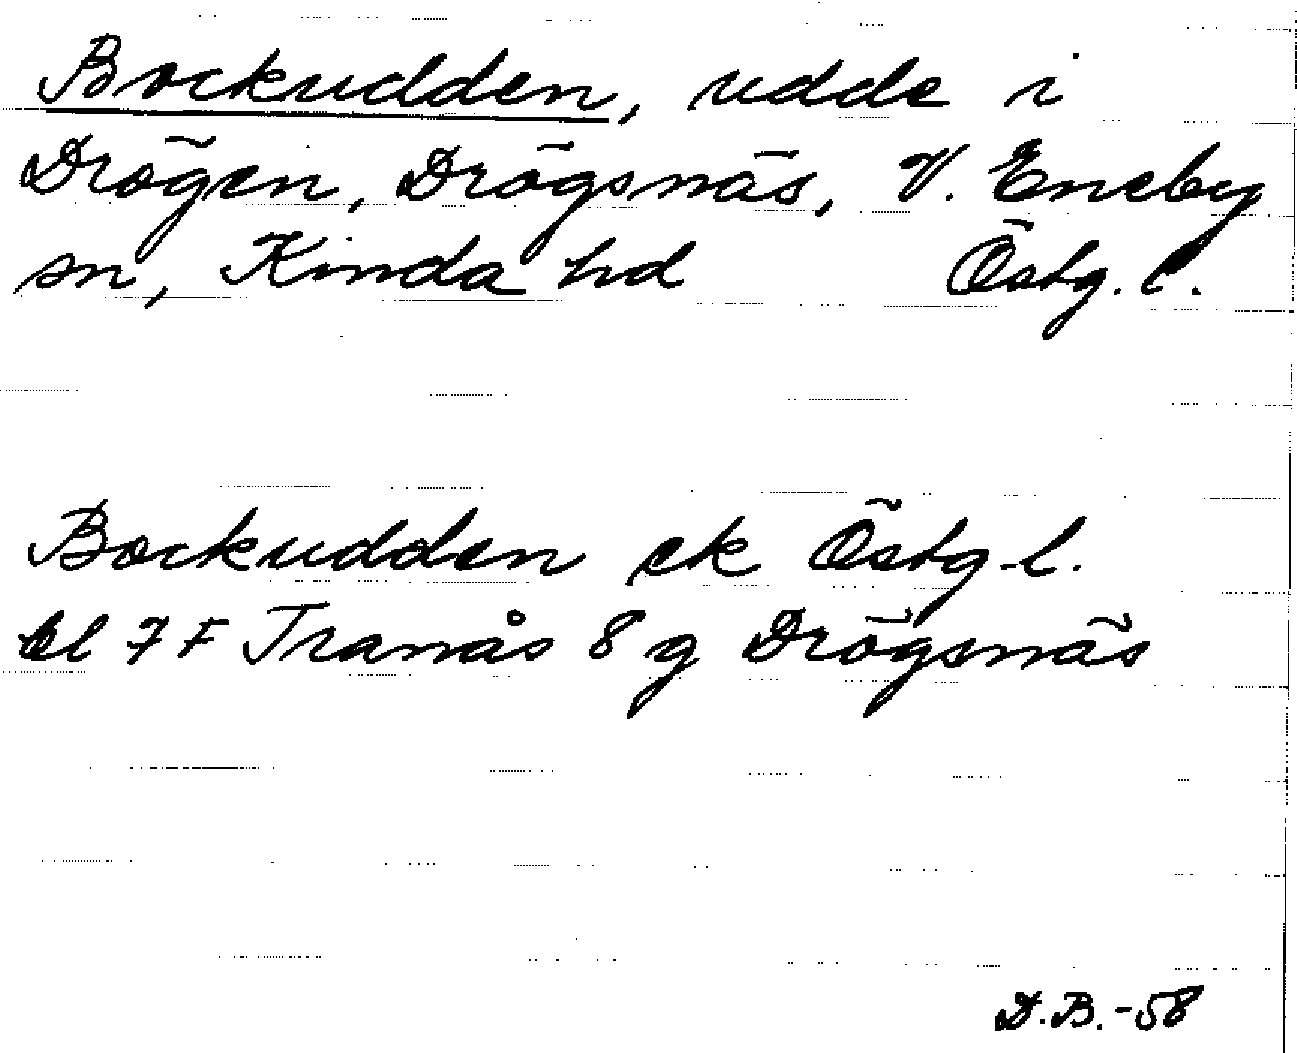 Bockudden, udde i
Drögen, Drögsnäs, V. Eneby
sn, Kinda hd Östg. l.
Bockudden ek Östg. l.
bl 7 F Tranås 8 g Drögsnäs
D.B.-58